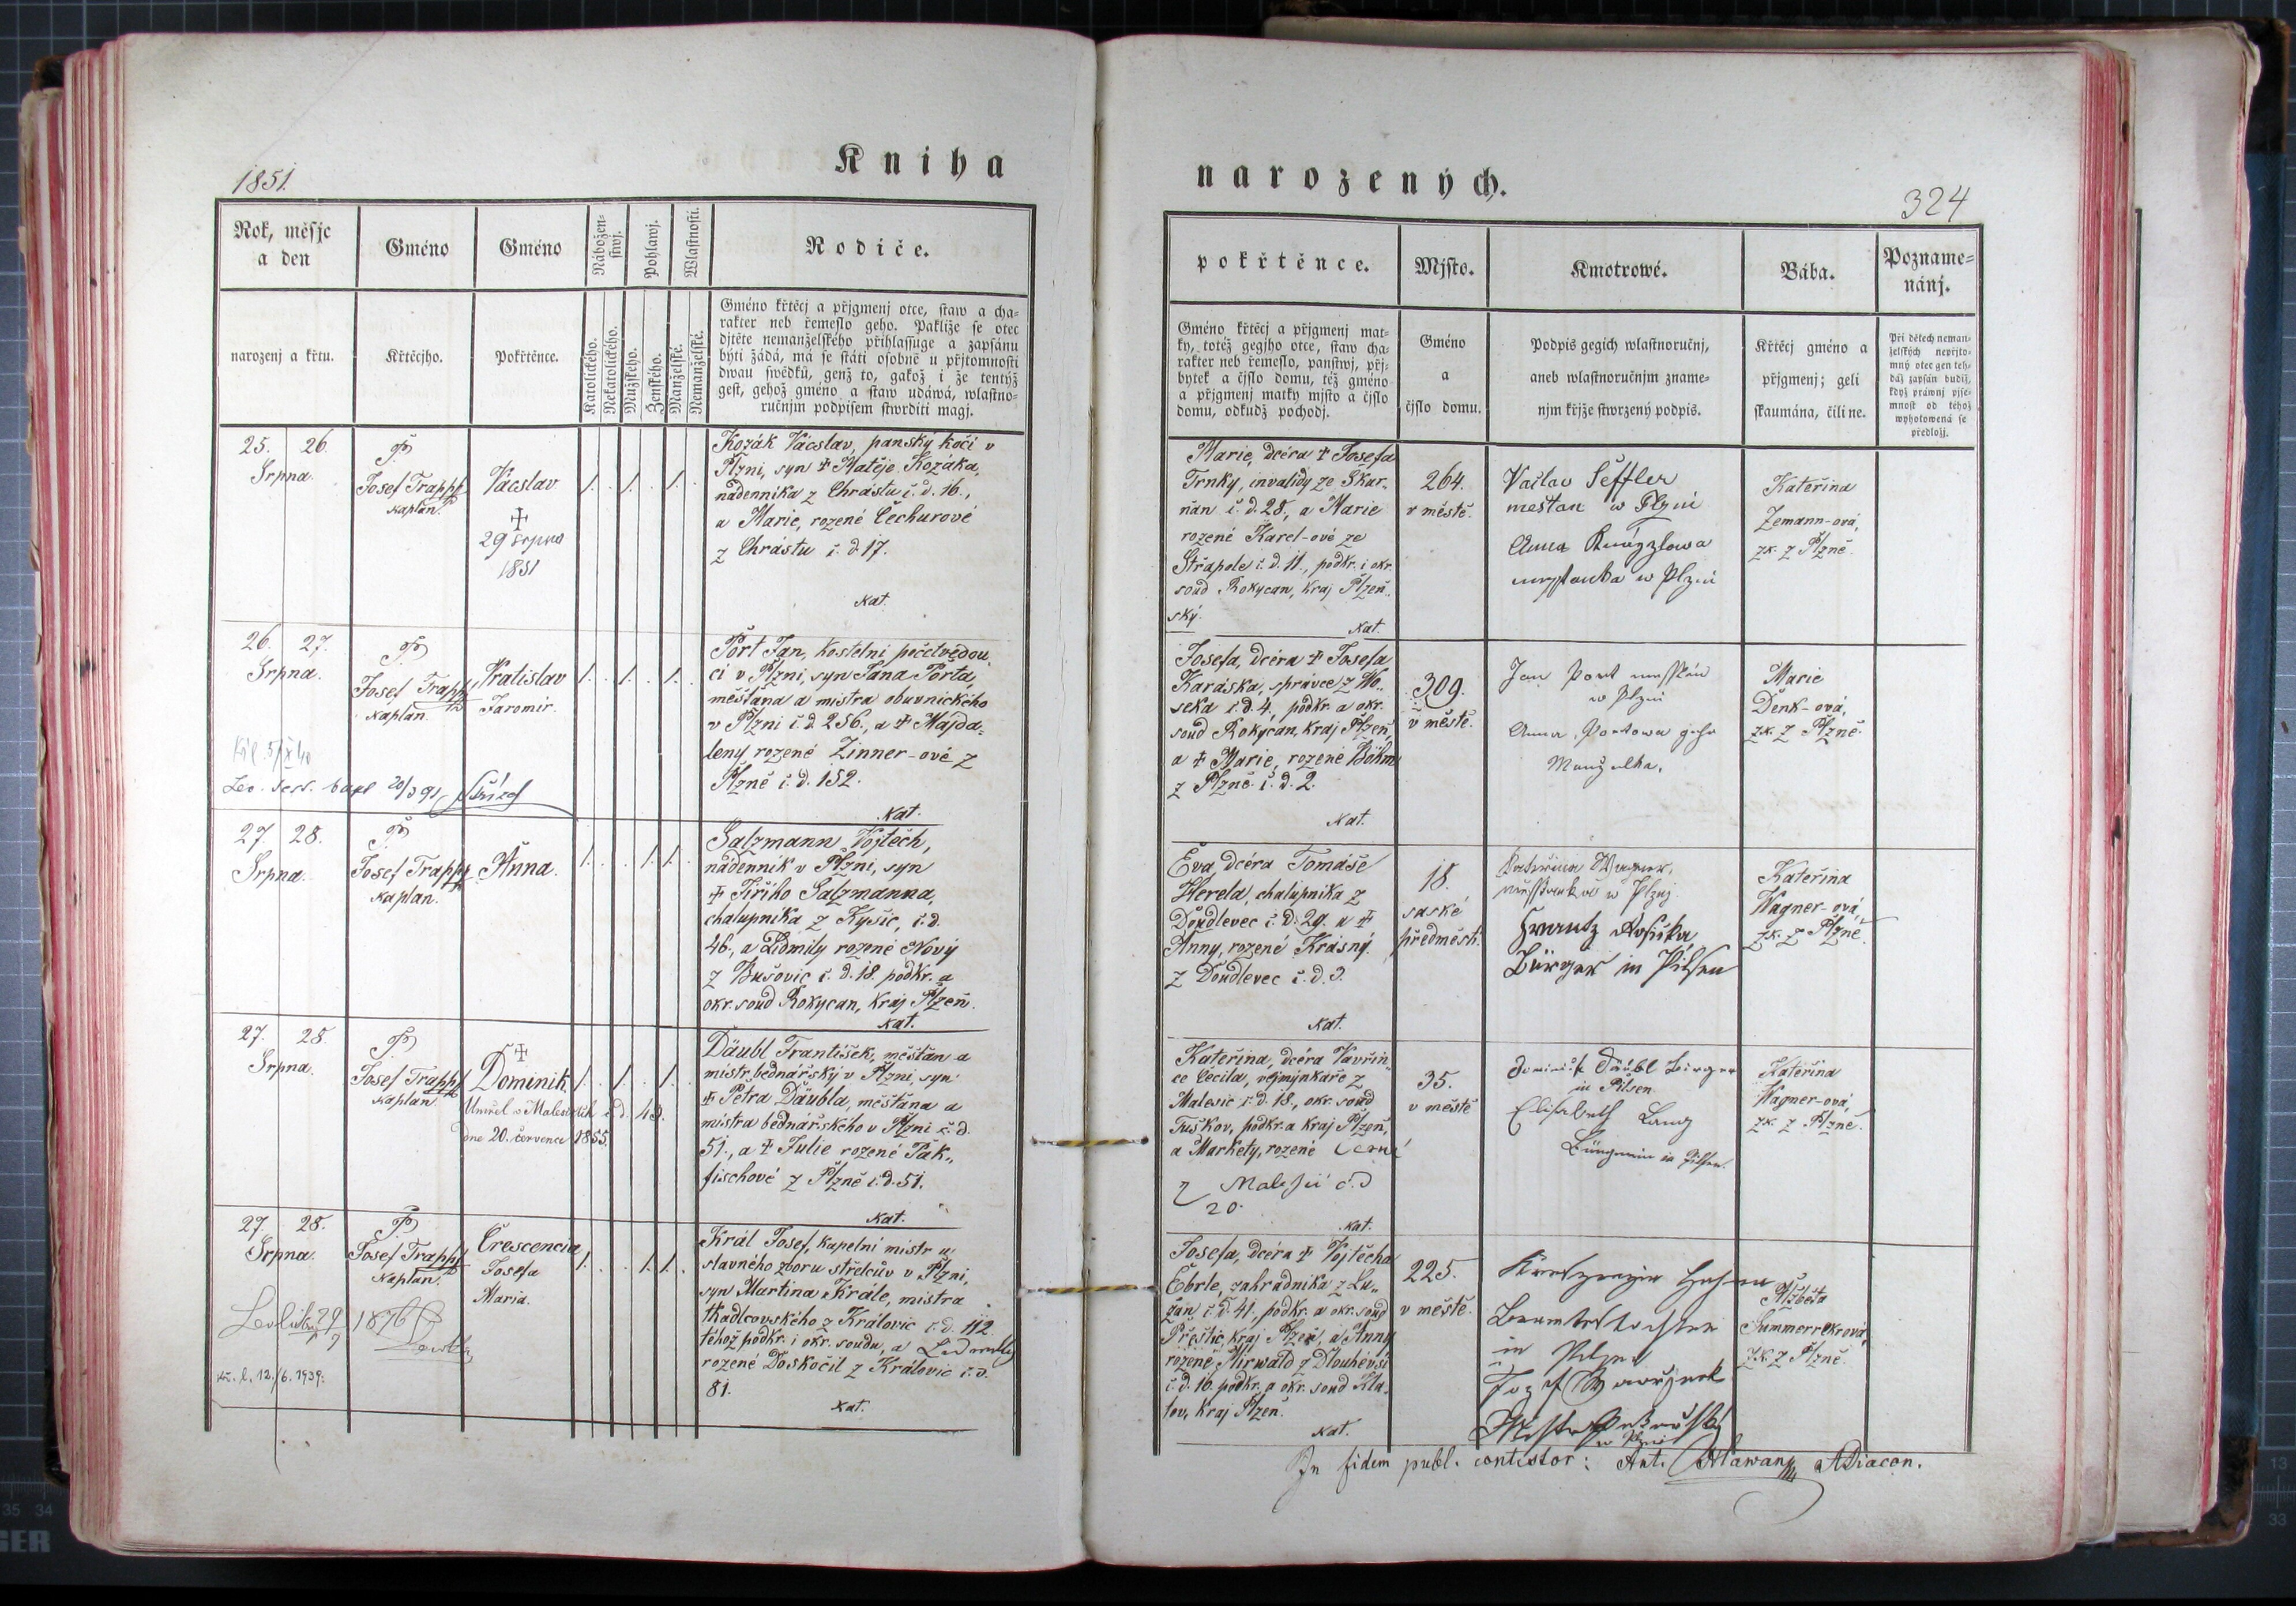 Kniha
narozených.
1851.
324
Rok, měsjc
a den
Gméno
Gméno
Nábožen-
stwj.
Pohlawj.
Wlastnosti.
Rodiče.
narozenj a křtu.
Křtěcjho.
Pokřtěnce.
Katolického.
Nekatolického.
Mužského.
Ženského.
Manželské.
Nemanželské.
Gméno křtěcj a přjgmenj otce, staw a cha=
rakter neb řemeslo geho. Pakliže se otec
djtěte nemanželského přihlassuge a zapsánu
býti žádá, má se státi osobně u přjtomnosti
dwau swědků, genž to, gakož i že tentýž
gest, gehož gméno a staw udáwá, wlastno=
ručnjm podpisem stwrditi magj.
25. 26.
Srpna.
P.
Josef Trapp
kaplan.
Vácslav
✝
29 srpna
1851
1. . 1. . 1. .
Kozák Vácslav, panský kočí v
Plzni, syn ✝ Matěje Kozáka,
nádenníka z Chrástu č. d. 16.,
a Marie, rozené Čechurové
z Chrástu č. d. 17.
Kat.
26. 27.
Srpna.
P.
Josef Trapp
kaplan.
Vratislav
Jaromír.
1. . 1. . 1. .
Port Jan, kostelní početvedou,
cí v Plzni, syn Jana Porta,
měšťana a mistra obuvnického
v Plzni č. d. 256., a ✝ Majda-
leny rozené Zinner-ové z
Plzně č. d. 152.
Kat.
27. 28.
Srpna.
P.
Josef Trapp
kaplan.
Anna.
1. . . 1. 1. .
Salzmann Vojtěch,
nádenník v Plzni, syn
✝ Jiřího Salzmanna,
chalupníka z Kyšic, č. d.
46., a Lidmily rozené Nový
z Bušovic č. d. 18. podkr. a
okr. soud Rokycan, kraj Plzeň.
Kat.
27. 28.
Srpna.
P.
Josef Trapp
kaplan.
✝
Dominik
Umřel v Malesicích č. d. 18.
dne 20. července 1855.
1. . 1. . 1. .
Däubl František, měšťan a
mistr bednářský v Plzni, syn
✝ Petra Däubla, měšťana a
mistra bednářského v Plzni č. d.
51., a ✝ Julie rozené Pak,,
fischové z Plzně č. d. 51.
Kat.
27. 28.
Srpna.
P.
Josef Trapp
kaplan.
Crescencia
Josefa
Maria.
12./6. 1939.
1. . . 1. 1. .
Král Josef, kapelní mistr u
slavného zboru střelcův v Plzni,
syn Martina Krále, mistra
tkadlcovského z Královic č. d. 112.
téhož podkr. i okr. soudu, a Lidmily
rozené Doskočil z Královic č. d.
81.
Kat.
pokřtěnce.
Mjsto.
Kmotrowé.
Bába.
Pozname=
nánj.
Gméno křtěcj a přjgmenj mat=
ky, totéž gegjho otce, staw cha=
rakter neb řemeslo, panstwj, přj=
bytek a čjslo domu, též gméno
a přjgmenj matky mjsto a čjslo
domu, odkudž pochodj.
Gméno
a
čjslo domu.
Podpis gegich wlastnoručnj,
aneb wlastnoručnjm zname=
njm křjže stwrzený podpis.
Křtěcj gméno a
přjgmenj; geli
skaumána, čili ne.
Při dětech neman=
želských nepřjto=
mný otec gen teh=
dáž zapsán budiž,
když práwnj pjse=
mnost od téhož
wyhotowená se
předložj.
Marie, dcéra ✝ Josefa
Trnky, invalidy ze Skur-
ňan č. d. 28., a Marie
rozené Karel-ové ze
Střapole č. d. 11., podkr. i okr.
soud Rokycan, kraj Plzeň,,
ský.
Kat.
264.
v městě.
Václav Šeffler
mešťan w Plzni
Anna
w Plzni
Kateřina
Zemann-ová,
zk. z Plzně.
Josefa, dcéra ✝ Josefa
Karáska, správce z Wo,,
seka č. d. 4, podkr. a okr.
soud Rokycan, kraj Plzeň,
a ✝ Marie, rozené Böhm
z Plzně č. d. 2.
Kat.
309.
v městě.
Jan Port messtan
w Plzni
Anna Portowa geho
Manzelka.
Marie
Denk-ová,
zk. z Plzně.
Eva, dcéra Tomáše
Herela, chalupníka z
Doudlevec č. d. 29. a ✝
Anny, rozené Krásný
z Doudlevec č. d. 3.
Kat.
18.
saské
předměstí.
Kateřina Wagner,
měsstanka w Plzni
Frantz
Bürger in Pilsen
Kateřina
Wagner-ová,
zk. z Plzně.
Kateřina, dcéra Vavřin,,
ce Cecila, vejmýnkáře z
Malesic č. d. 18., okr. soud
Tuškov, podkr. a kraj Plzeň,
a Markety, rozené Černi
z Malesic č. d
20.
Kat.
35.
v městě
Dominik Däubl Bürger
in Pilsen
Elisabeth Lang
Bürgerin in Pilsen.
Kateřina
Wagner-ová,
zk. z Plzně.
Josefa, dcéra ✝ Vojtěcha
Eberle, zahradníka z Lu,,
žan č. d. 41., podkr. a okr. soud
Přeštic, kraj Plzeň, a Anny
rozené Mirwald z Dlouhévsi
č. d. 16. podkr. a okr. soud Kla-
tov, kraj Plzeň.
Kat.
225.
v městě.
in Pilsen
w Plzni
Alžběta
Summerrekrová,
zk. z Plzně.
In fidem publ. contistor: Ant. Hlawan ADiacon.